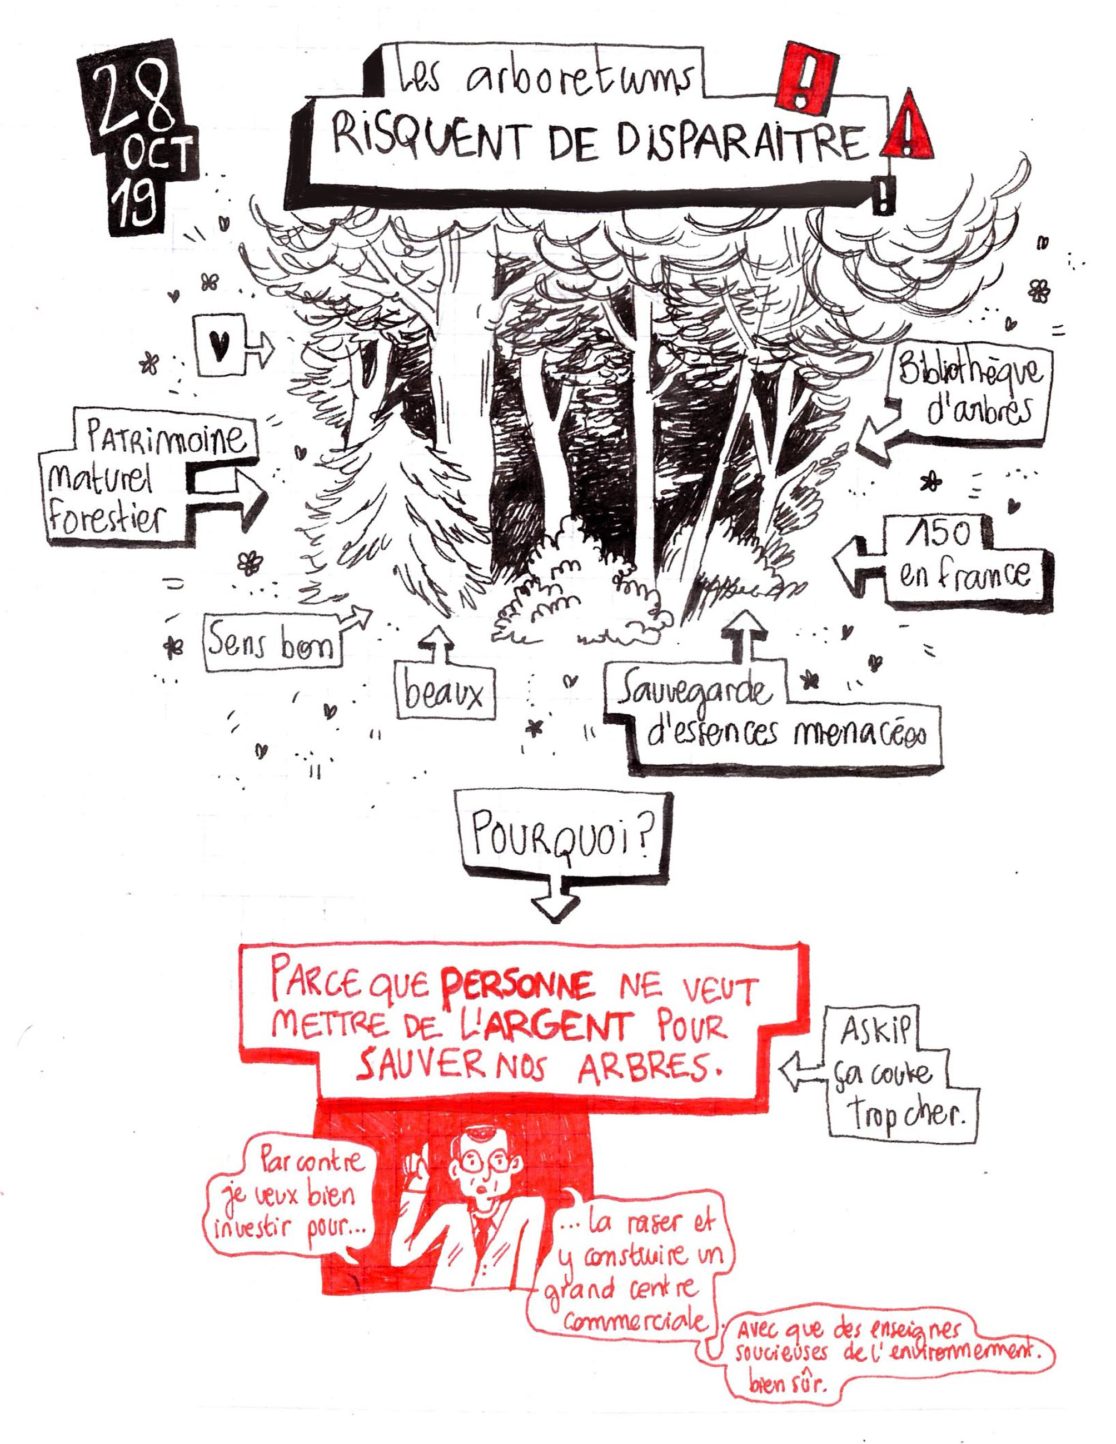 28
OCT
19
Les arboretums
RISQUENT DE DISPARAITRE
!
!
!
Bibliothèque
d'arbres
PATRIMOINE
naturel
forestier
150
en france
Sens bon
beaux
Sauvegarde
d'essences menacées
POURQUOI?
PARCE QUE PERSONNE NE VEUT
METTRE DE L'ARGENT POUR
SAUVER NOS ARBRES.
ASKIP
ça coute
trop cher.
Par contre
je veux bien
investir pour...
... La raser et
y construire un
grand centre
commerciale.
Avec que des enseignes
soucieuses de l'environnement.
bien sûr.